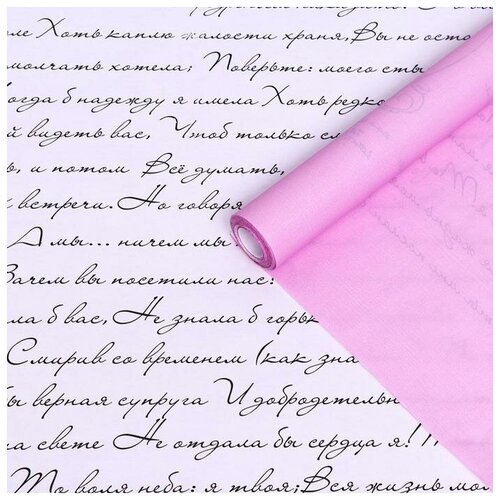 ле Хоть каплю жалости храня, Вы не оста
молчать хотела; Поверьте: моего сты
огда б надежду я имела Хоть редко
й видеть вас, Чтоб только сл
ь, и потом Всё думать,
встречи. Но говоря
А мы... ничем мы
Зачем вы посетили нас:
ла б вас, Не знала б горьк
Смирив со временем (как зна
ы верная супруга И добродетельн
а свете Не отдала бы сердца я!
То воля неба: я твоя; Вся жизнь мо